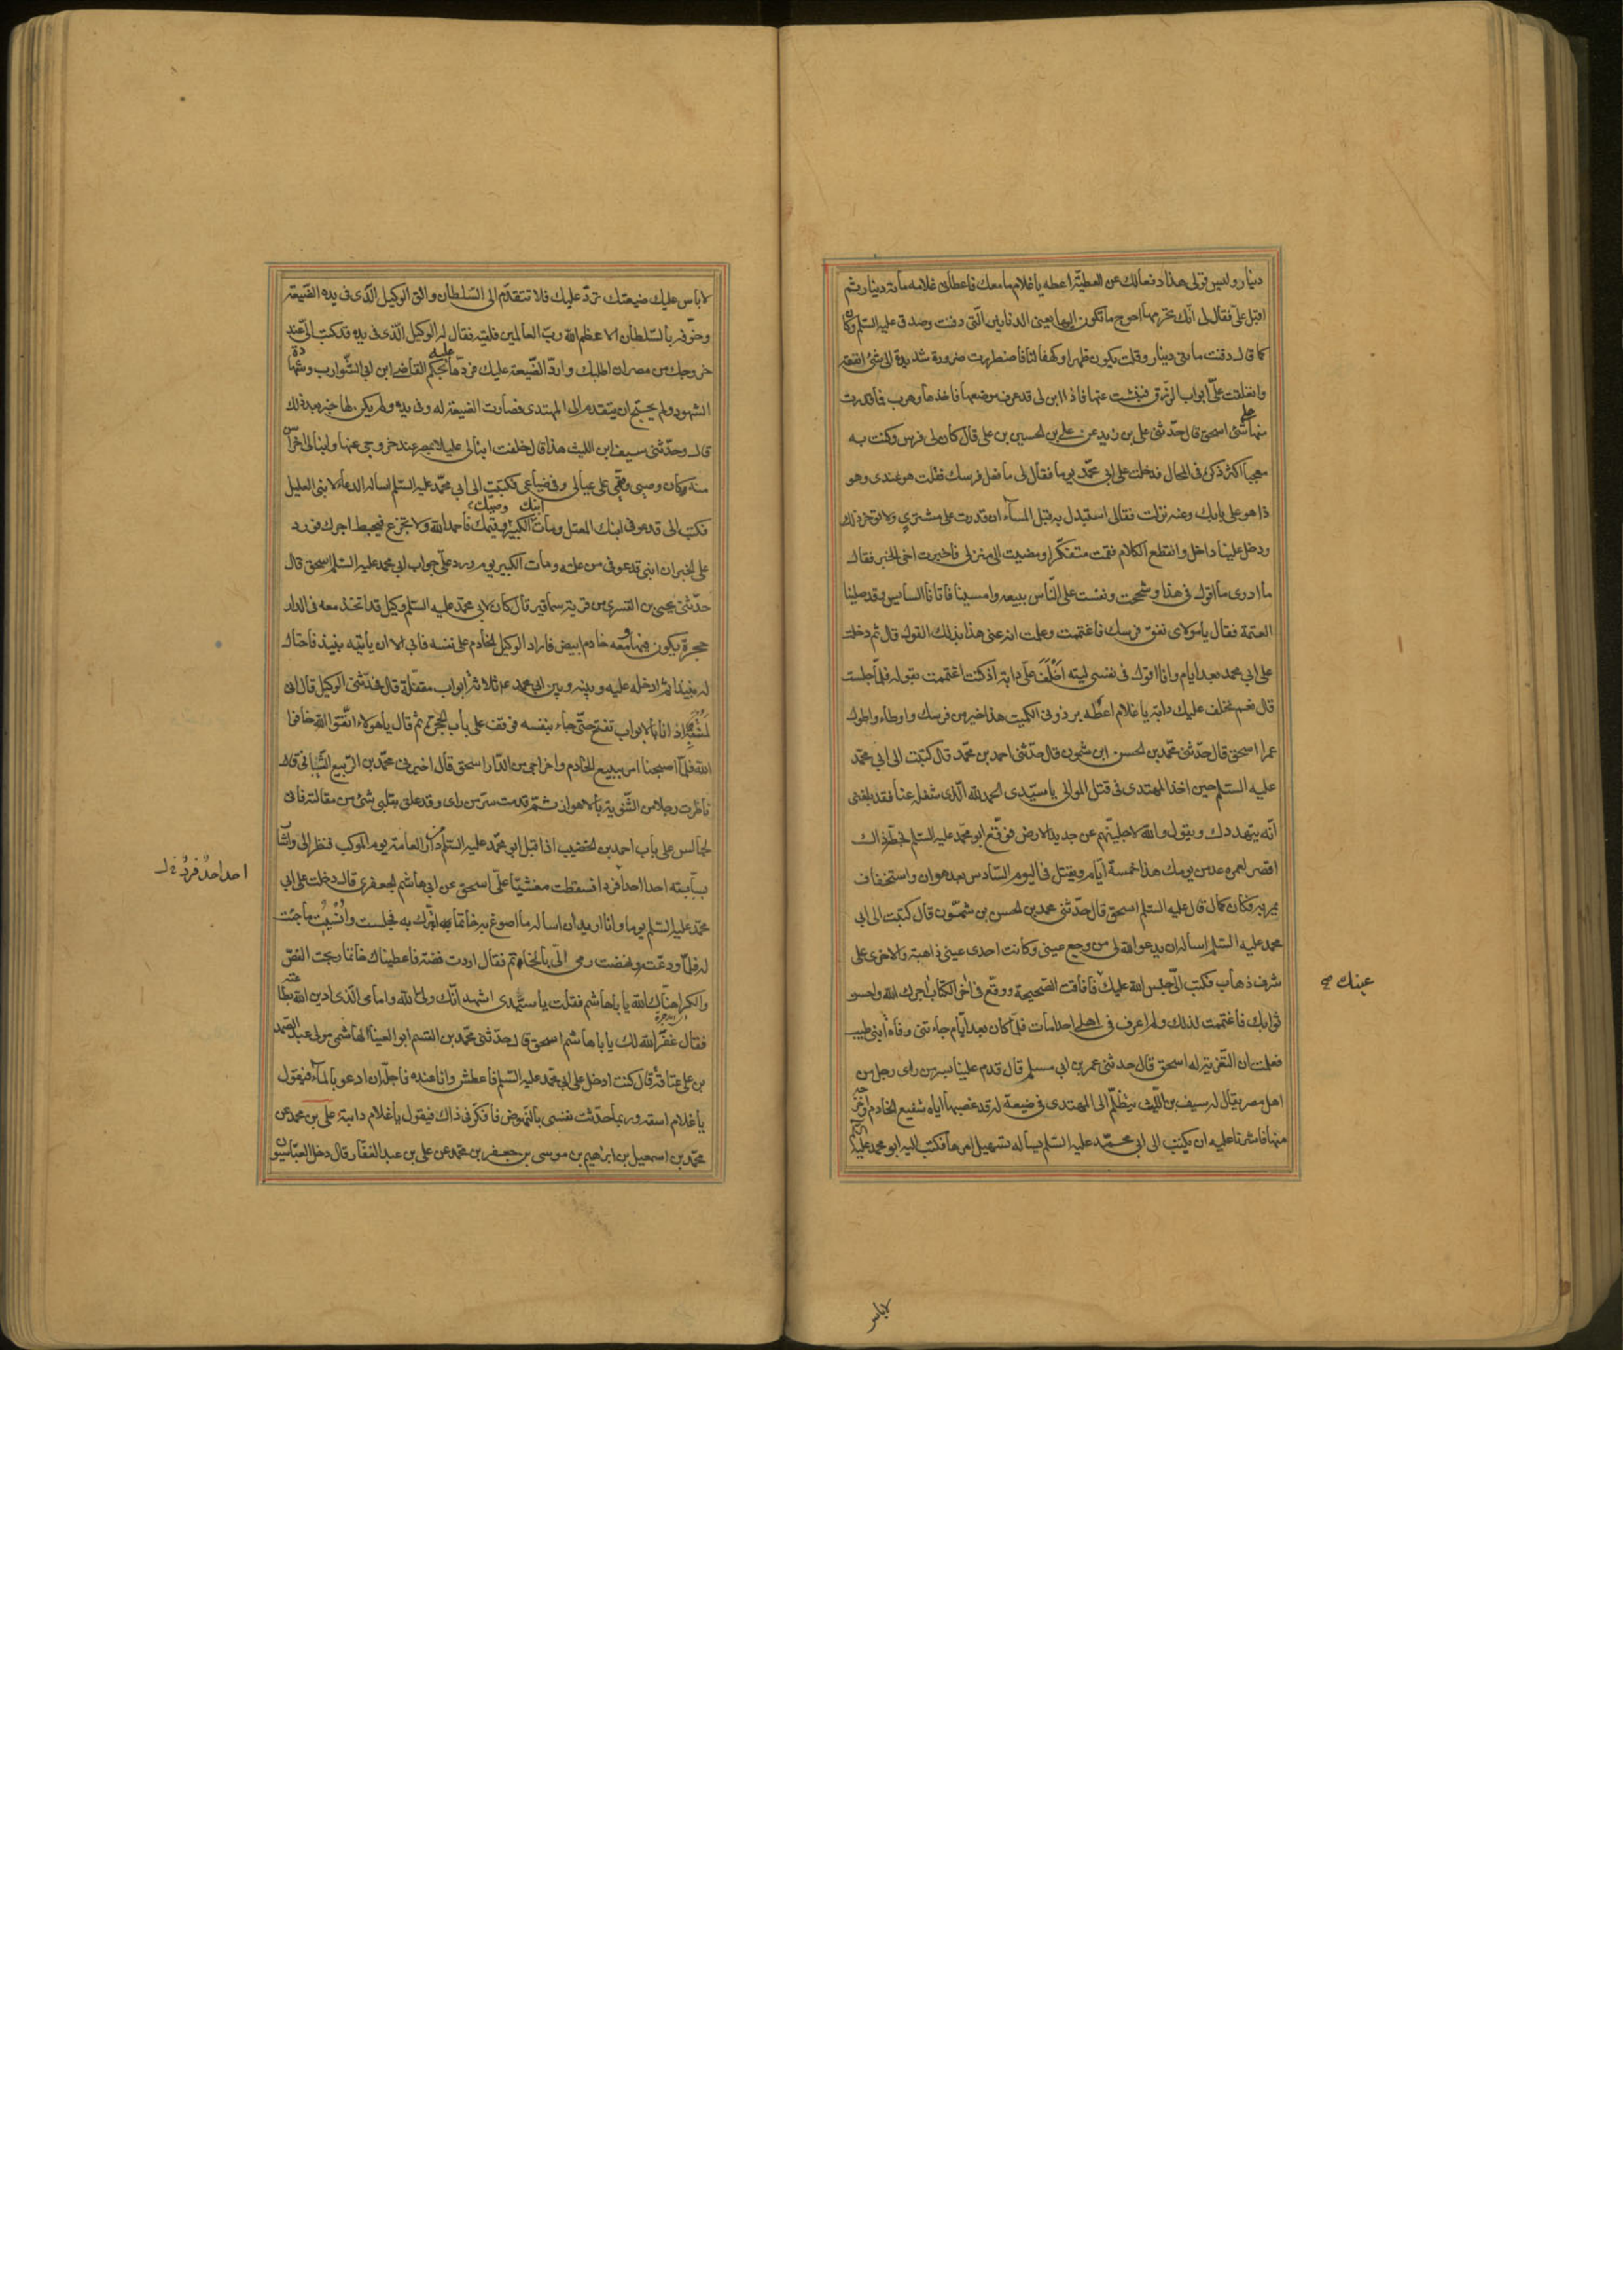 دينار وليس قولى هذا دفعا لك عن العطية اعطه يا غلام ما معك فاعطانى غلامه مأة دينار ثم
اقبل علىّ فقال لى انّك تحرمها احوج ما تكون اليها يعنى الدنانير الّتى دفنت وصدق عليه السّلم وكان
كما قال دفنت مأتى دينار وقلت يكون ظهرا وكهفا لنا فاضطررت ضرورة شديدة الى شئ انفقه
وانغلقت علىّ ابواب الرّزق فنبشت عنها فاذا ابن لى قد عرف موضعها فاخذها وهرب فما قدرت
منها على شئ اسحق قال حدّثنى على بن زيد عن على بن الحسين بن على قال كان لى فرس وكنت به
معجبا اكثر ذكره فى المحال فدخلت على ابى محمّد يوما فقال لى ما فعل فرسك فقلت هو عندى وهو
ذا هو على بابك وعنه نزلت فقال لى استبدل به قبل المسآء ان قدرت على مشترى ولا تؤخر ذلك
ودخل علينا داخل وانقطع الكلام فقمت متفكّرا ومضيت الى منزلى فاخبرت اخى الخبر فقال
ما ادرى ما اقول فى هذا وشححت ونفست على النّاس ببيعه وامسينا فأتانا السايس وقد صلينا
العتمة فقال يا مولاى نفق فرسك فاغتممت وعلمت انه عنى هذا بذلك القول قال ثم دخلت
على ابى محمد بعد ايام وانا اقول فى نفسى ليته اخلف علىّ دابة اذ كنت اغتممت بقوله فلمّا جلست
قال نعم نخلف عليك دابة يا غلام اعطه برذونى الكميت هذا خير من فرسك واوطاء واطول
عمرا اسحق قال حدّثنى محمّد بن الحسن ابن شمون قال حدّثنى احمد بن محمّد قال كتبت الى ابى محمّد
عليه السّلم حين اخذ المهتدى فى قتل الموالى يا سيّدى الحمد لله الّذى شغله عنا فقد بلغنى
انّه يتهددك ويقول والله لاجلينّهم عن جديد الارض فوقّع ابو محمّد عليه السّلم بخطّه ذاك
اقصر لعمره عد من يومك هذا خمسة ايّام ويقتل فى اليوم السّادس بعد هوان واستخفاف
يمر به فكان كما قال عليه السّلم اسحق قال حدّثنى محمد بن الحسن بن شمّون قال كتبت الى ابى
محمد عليه السّلم اسأله ان يدعو الله لى من وجع عينى وكانت احدى عينى ذاهبة والاخرى على
شرف ذهاب فكتب الىّ حبس الله عليك فافاقت الصّحيحة ووقّع فى اخر الكتاب اجرك الله واحسن
ثوابك فاغتممت لذلك ولم اعرف فى اهلى احدا مات فلمّا كان بعد ايّام جاءتنى وفاة ابنى طيب
فعلمت ان التّعزية له اسحق قال حدثنى عمر بن ابى مسلم قال قدم علينا بسر من راى رجل من
اهل مصر يقال له سيف بن اللّيث يتظلّم الى المهتدى فى ضيعة له قد غصبها اياه شفيع الخادم واخرجه
منها فاشرنا عليه ان يكتب الى ابى محمّد عليه السّلم يسأله تسهيل امرها فكتب اليه ابو محمد عليه السّلم
عينك صح
لا باس
لا باس عليك ضيعتك تردّ عليك فلا تتقدّم الى السّلطان والق الوكيل الّذى فى يده الضّيعة
وخوّفه بالسّلطان الاعظم الله ربّ العالمين فلقيه فقال له الوكيل الّذى فى يده قد كتب الىّ عند
خروجك من مصر ان اطلبك واردّ الضّيعة عليك فردّها عليه بحكم القاضى ابن ابى الشّوارب وشهادة
الشهود ولم يحتج ان يتقدم الى المهتدى فصارت الضّيعة له وفى يده ولم يكن لها خبر بعد ذلك
قال وحدّثنى سيف ابن اللّيث هذا قال خلفت ابنا لى عليلا بمصر عند خروجى عنها وابنا لى اخر اسنّ
منه كان وصيى وقيّمى على عيالى وفى ضياعى فكتبت الى ابى محمّد عليه السّلم اسأله الدعاء لابنى العليل
فكتب الى قد عوفى ابنك المعتل ومات الكبير ابنك وصيك وقيمك فاحمد الله ولا تجزع فيحبط اجرك فورد
على الخبر ان ابنى قد عوفى من علته ومات الكبير يوم ورد علىّ جواب ابى محمد عليه السّلم اسحق قال
حدّثنى يحيى بن القسرى من قرية سما قير قال كان لابى محمّد عليه السّلم وكيل قد اتخذ معه فى الدار
حجرة يكون فيها ومعه خادم ابيض فاراد الوكيل الخادم على نفسه فابى الا ان يأتيه بنبيذ فاحتال
له نبيذا ثمّ ادخله عليه وبينه وبين ابى محمد عم ثلاثة ابواب مقفلة قال فحدّثنى الوكيل قال انى
لمنتبه اذ انا بالابواب تفتح حتّى جاء بنفسه فوقف على باب الحجرة ثم قال يا هؤلاء اتّقوا الله خافوا
الله فلمّا اصبحنا امر ببيع الخادم واخراجى من الدّار اسحق قال اخبرنى محمّد بن الرّبيع الشّبانى قال
ناظرت رجلا من الثّنوية بالاهواز ثمّ قدمت سرّ من راى وقد علق بقلبى شئ من مقالته فانى
لجالس على باب احمد بن الخضيب اذ اقبل ابو محمّد عليه السّلم من دار العامة يوم الموكب فنظر الى واشار
بسبابته احدا احدا فردا فسقطت مغشيّا علىّ اسحق عن ابى هاشم الجعفرى قال دخلت على ابى
محمّد عليه السّلم يوما وانا اريد ان اسأله ما اصوغ به خاتما اتبرّك به فجلست وانسيت ما جئت
له فلمّا ودعت ونهضت رمى الىّ بالخاتم فقال اردت فضة فاعطيناك خاتما ربحت الفصّ
والكرا هنّاك الله يا با هاشم فقلت يا سيّدى اشهد انّك ولى الله وامامى الّذى ادين الله بطاعته
فقال غفر الله لك يا با هاشم اسحق قال حدّثنى محمّد بن القسم ابو العينا الهاشمى مولى عبد الصّمد
بن على عتاقة قال كنت ادخل على ابى محمّد عليه السّلم فاعطش وانا عنده فاجلّه ان ادعو بالمآء فيقول
يا غلام اسقه وربما حدّثت نفسى بالنّهوض فافكّر فى ذاك فيقول يا غلام دابته على بن محمد عن
محمّد بن اسمعيل بن ابرهيم بن موسى بن جعفر بن محمّد عن على بن عبد الغفّار قال دخل العبّاسيون
احد احد فرد خ ل